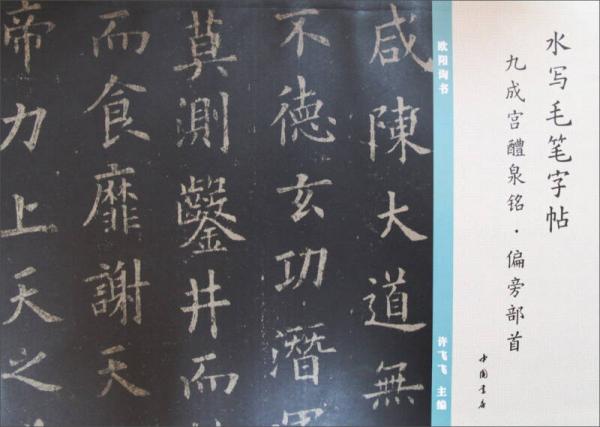 水写毛笔字帖
九成宫醴泉铭·偏旁部首
中国书店
欧阳询书
许飞飞 主编
咸陳大道無
不德玄功潛
莫測鑿井而
而食靡謝天
帝力上天之